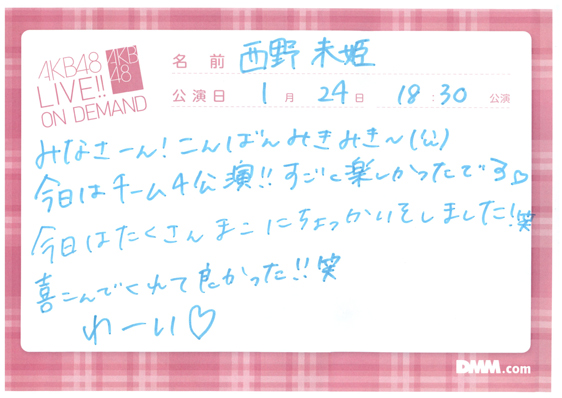 AKB48
LIVE!!
ON DEMAND
AKB
48
名 前 西野 未姫
公演日 1 月 24 日 18:30 公演
みなさーん!こんばんみきみき〜(公)
今日はチーム4公演!!すごく楽しかったです♡
今日はたくさんまこにちょっかいをしました!笑
喜こんでくれて良かった!!笑
わーい♡
DMM.com